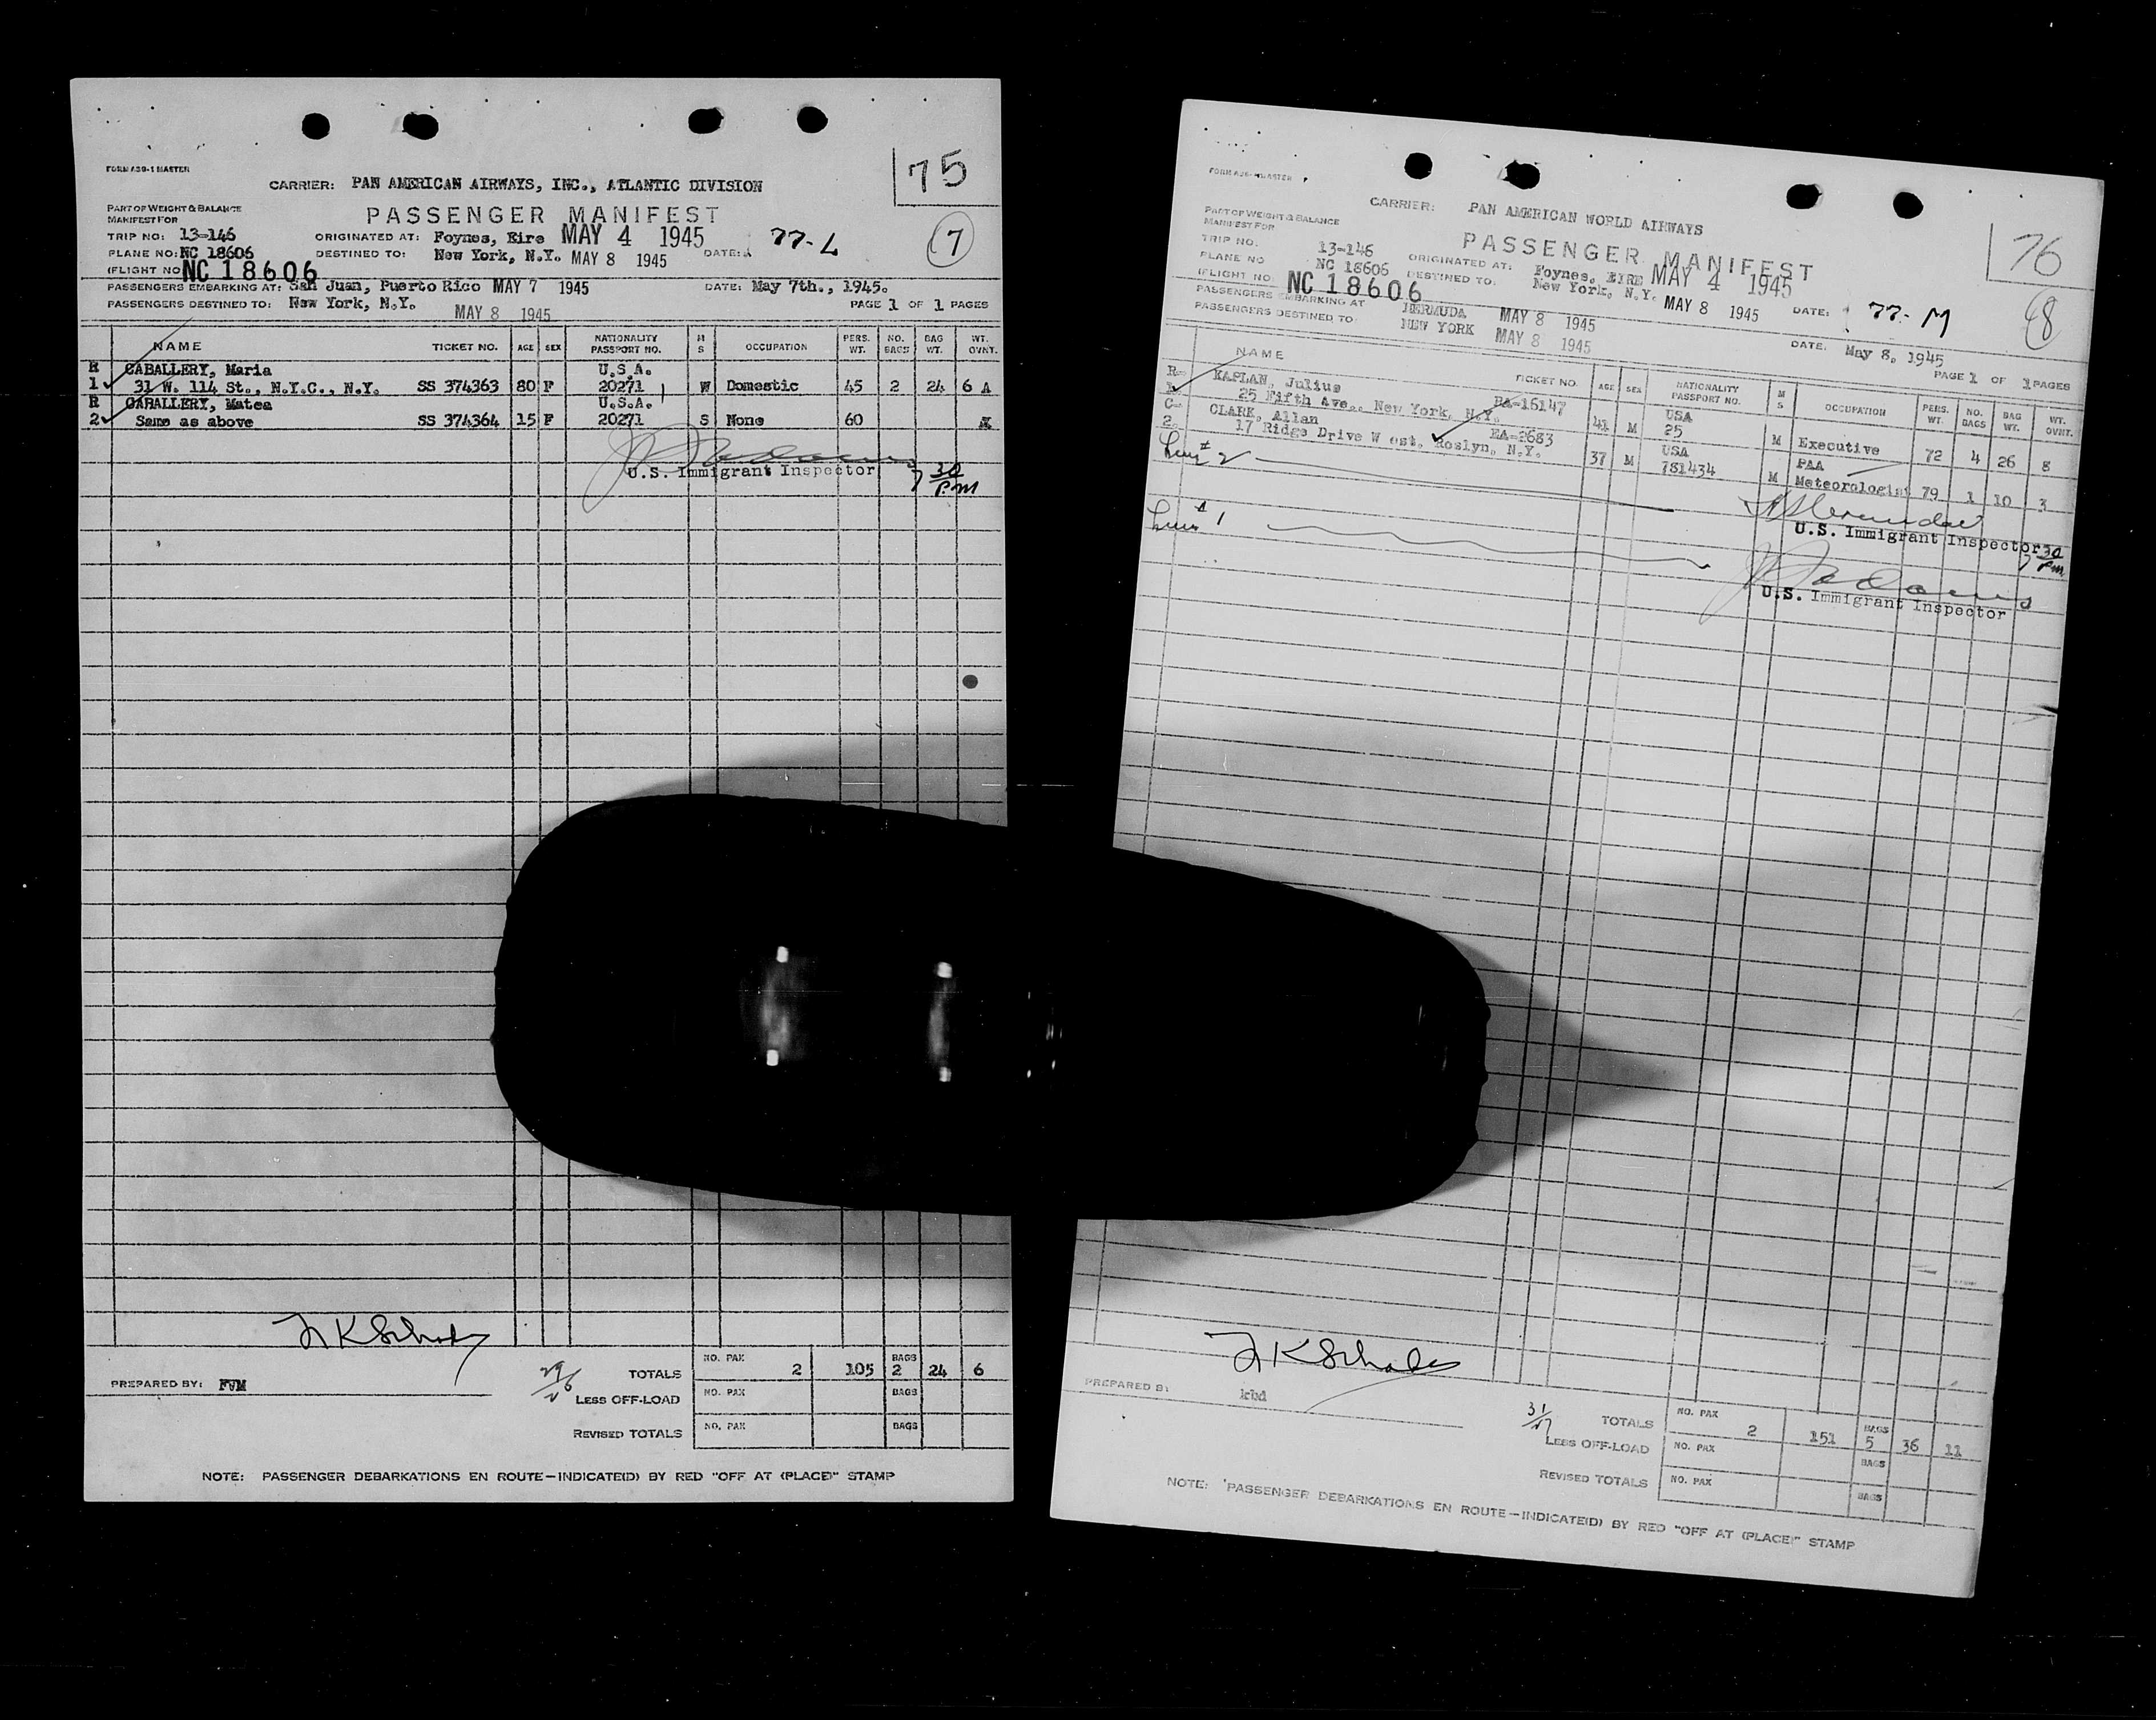 75
FORM ASG-1 MASTER
CARRIER: PAN AMERICAN AIRWAYS, INC., ATLANTIC DIVISION
PART OF WEIGHT & BALANCE
MANIFEST FOR
PASSENGER MANIFEST
7
TRIP NO: 13-146 ORIGINATED AT: Foynes, Eire MAY 4 1945 77-L
PLANE NO: NC 18606 DESTINED TO: New York, N.Y. MAY 8 1945 DATE:
(FLIGHT NO NC 18606
PASSENGERS EMBARKING AT: San Juan, Puerto Rico MAY 7 1945 DATE: May 7th., 1945.
PASSENGERS DESTINED TO: New York, N.Y. MAY 8 1945 PAGE 1 OF 1 PAGES
NAME TICKET NO. AGE SEX NATIONALITY PASSPORT NO. M S OCCUPATION PERS. WT. NO. BAGS BAG WT. WT. OVNT.
R CABALLERY, Maria U.S.A.
1 31 W. 114 St., N.Y.C., N.Y. SS 374363 80 F 20271 W Domestic 45 2 24 6 A
R CABALLERY, Matea U.S.A.
2 Same as above SS 374364 15 F 20271 S None 60
U.S. Immigrant Inspector 7 30 P.m
PREPARED BY: FVM
TOTALS NO. PAX 2 105 BAGS 2 24 6
LESS OFF-LOAD NO. PAX BAGS
REVISED TOTALS NO. PAX BAGS
NOTE: PASSENGER DEBARKATIONS EN ROUTE—INDICATE(D) BY RED "OFF AT (PLACE)" STAMP
76
CARRIER: PAN AMERICAN WORLD AIRWAYS
PART OF WEIGHT & BALANCE
MANIFEST FOR
PASSENGER MANIFEST
8
TRIP NO. 13-146 ORIGINATED AT: Foynes, EIRE MAY 4 1945
PLANE NO NC 18606 DESTINED TO: New York, N.Y. MAY 8 1945 DATE: 77-M
(FLIGHT NO. NC 18606
PASSENGERS EMBARKING AT BERMUDA MAY 8 1945 DATE. May 8, 1945
PASSENGERS DESTINED TO: NEW YORK MAY 8 1945 PAGE 1 OF 1 PAGES
NAME TICKET NO. AGE SEX NATIONALITY PASSPORT NO. M S OCCUPATION PERS. WT. NO. BAGS BAG WT. WT. OVNT.
R- KAPLAN, Julius BA-16147 USA
1. 25 Fifth Ave., New York, N.Y. 41 M 25 M Executive 72 4 26 8
C- CLARK, Allan EA-2683 USA PAA
2. 17 Ridge Drive W est, Roslyn, N.Y. 37 M 781434 M Meteorologist 79 1 10 3
Line # 2
U.S. Immigrant Inspector
Line # 1 7 30 Pm
U.S. Immigrant Inspector
PREPARED BY
31
TOTALS NO. PAX 2 151 BAGS 5 36 11
LESS OFF-LOAD NO. PAX BAGS
REVISED TOTALS NO. PAX BAGS
NOTE: PASSENGER DEBARKATIONS EN ROUTE—INDICATE(D) BY RED "OFF AT (PLACE)" STAMP